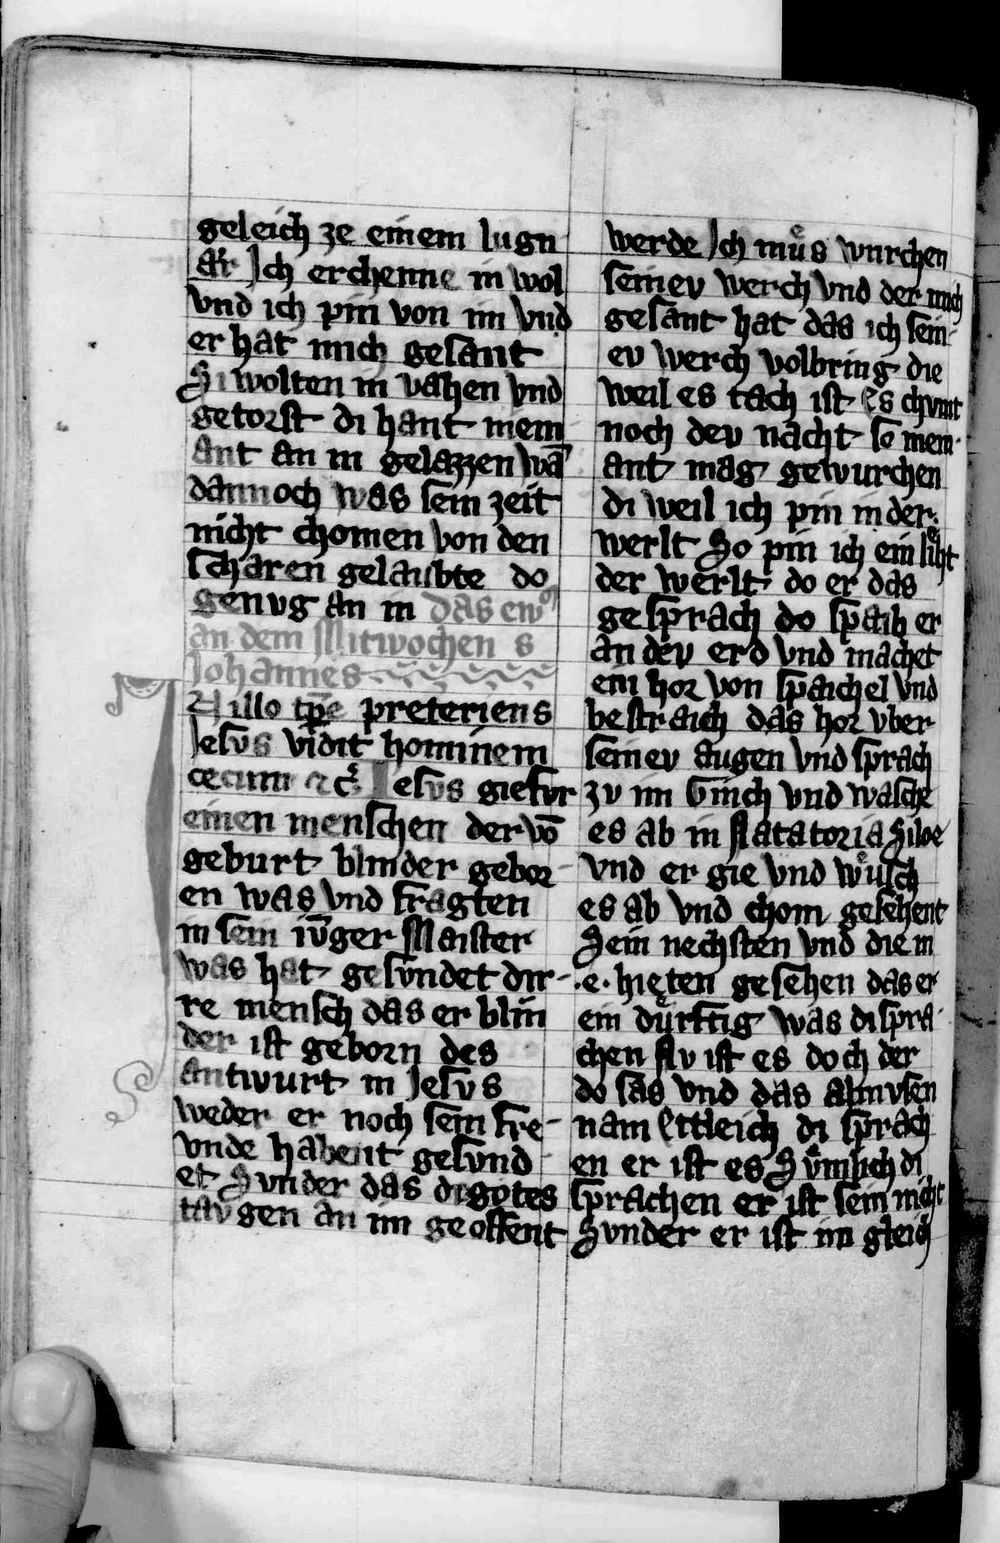 geleich ze einem lugn
ar Ich erchenne in wol
vnd ich pin von im vnd
er hat mich gesant
Si wolten in vahen vnd
getorst di hant niem
ant an in gelazzen wā
dannoch was sein zeit
nicht chomen von den
scharen gelaubte do
genvg an in das ewᵒ
an dem Mitwochen s
Johannes
N illo tp̄e preteriens
Jesvs vidit hominem
cecum ⁊ c̄ Jesvs gie fvr
einen menschen der vō
geburt blinder gebor
en was vnd fragten
in sein iv̄ger Maister
was hat gesvndet dir
re mensch das er blin
der ist geborn des
antwurt in Jesvs
weder er noch sein fre
vnde habent gesvnd
et Svnder das di gotes
tavgen an im geoffent
werde Ich můs wurchen
seinev werch vnd der mich
gesant hat das ich sein
ev werch volbring die
weil es tach ist Es chvmt
noch dev nacht so niem
ant mag gewurchen
di weil ich pin in der
werlt So pin ich ein liht
der werlt do er das
gesprach do spaib er
an dev erd vnd machet
ein hor von spaichel vnd
bestraich das hor vber
seinev augen vnd sprach
zv im Ginch vnd wasche
es ab in Natatoria Siloe
vnd er gie vnd wůsch
es ab vnd chom gesehent
Sein nechsten vnd die in
.e. hieten gesehen das er
ein durftig was di spra
chen Nv ist es doch der
do sas vnd das almvsen
nam Ettleich di sprach
en er ist es Svmlich di
sprachen er ist sein nicht
Svnder er ist im gleich